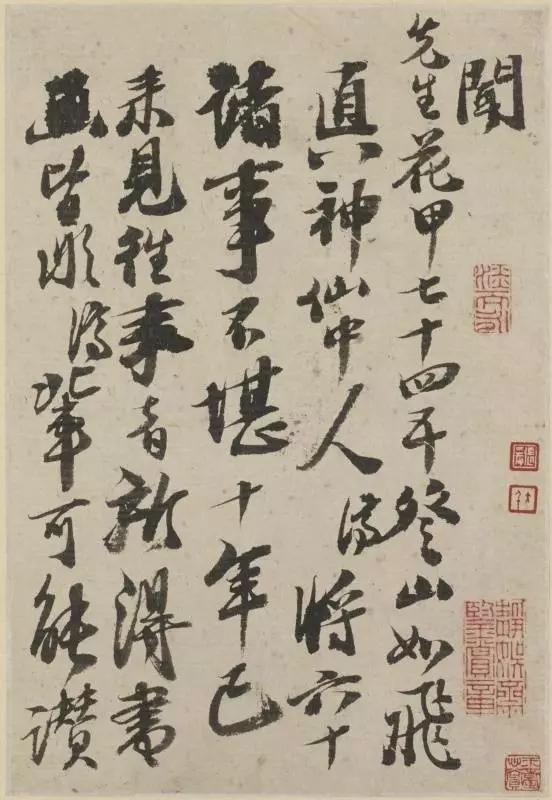 聞
先生花甲七十四五登山如飛
真神仙中人濟將六十
諸事不堪十年已
来見徃事者所得書
畫皆非濟輩可能讚